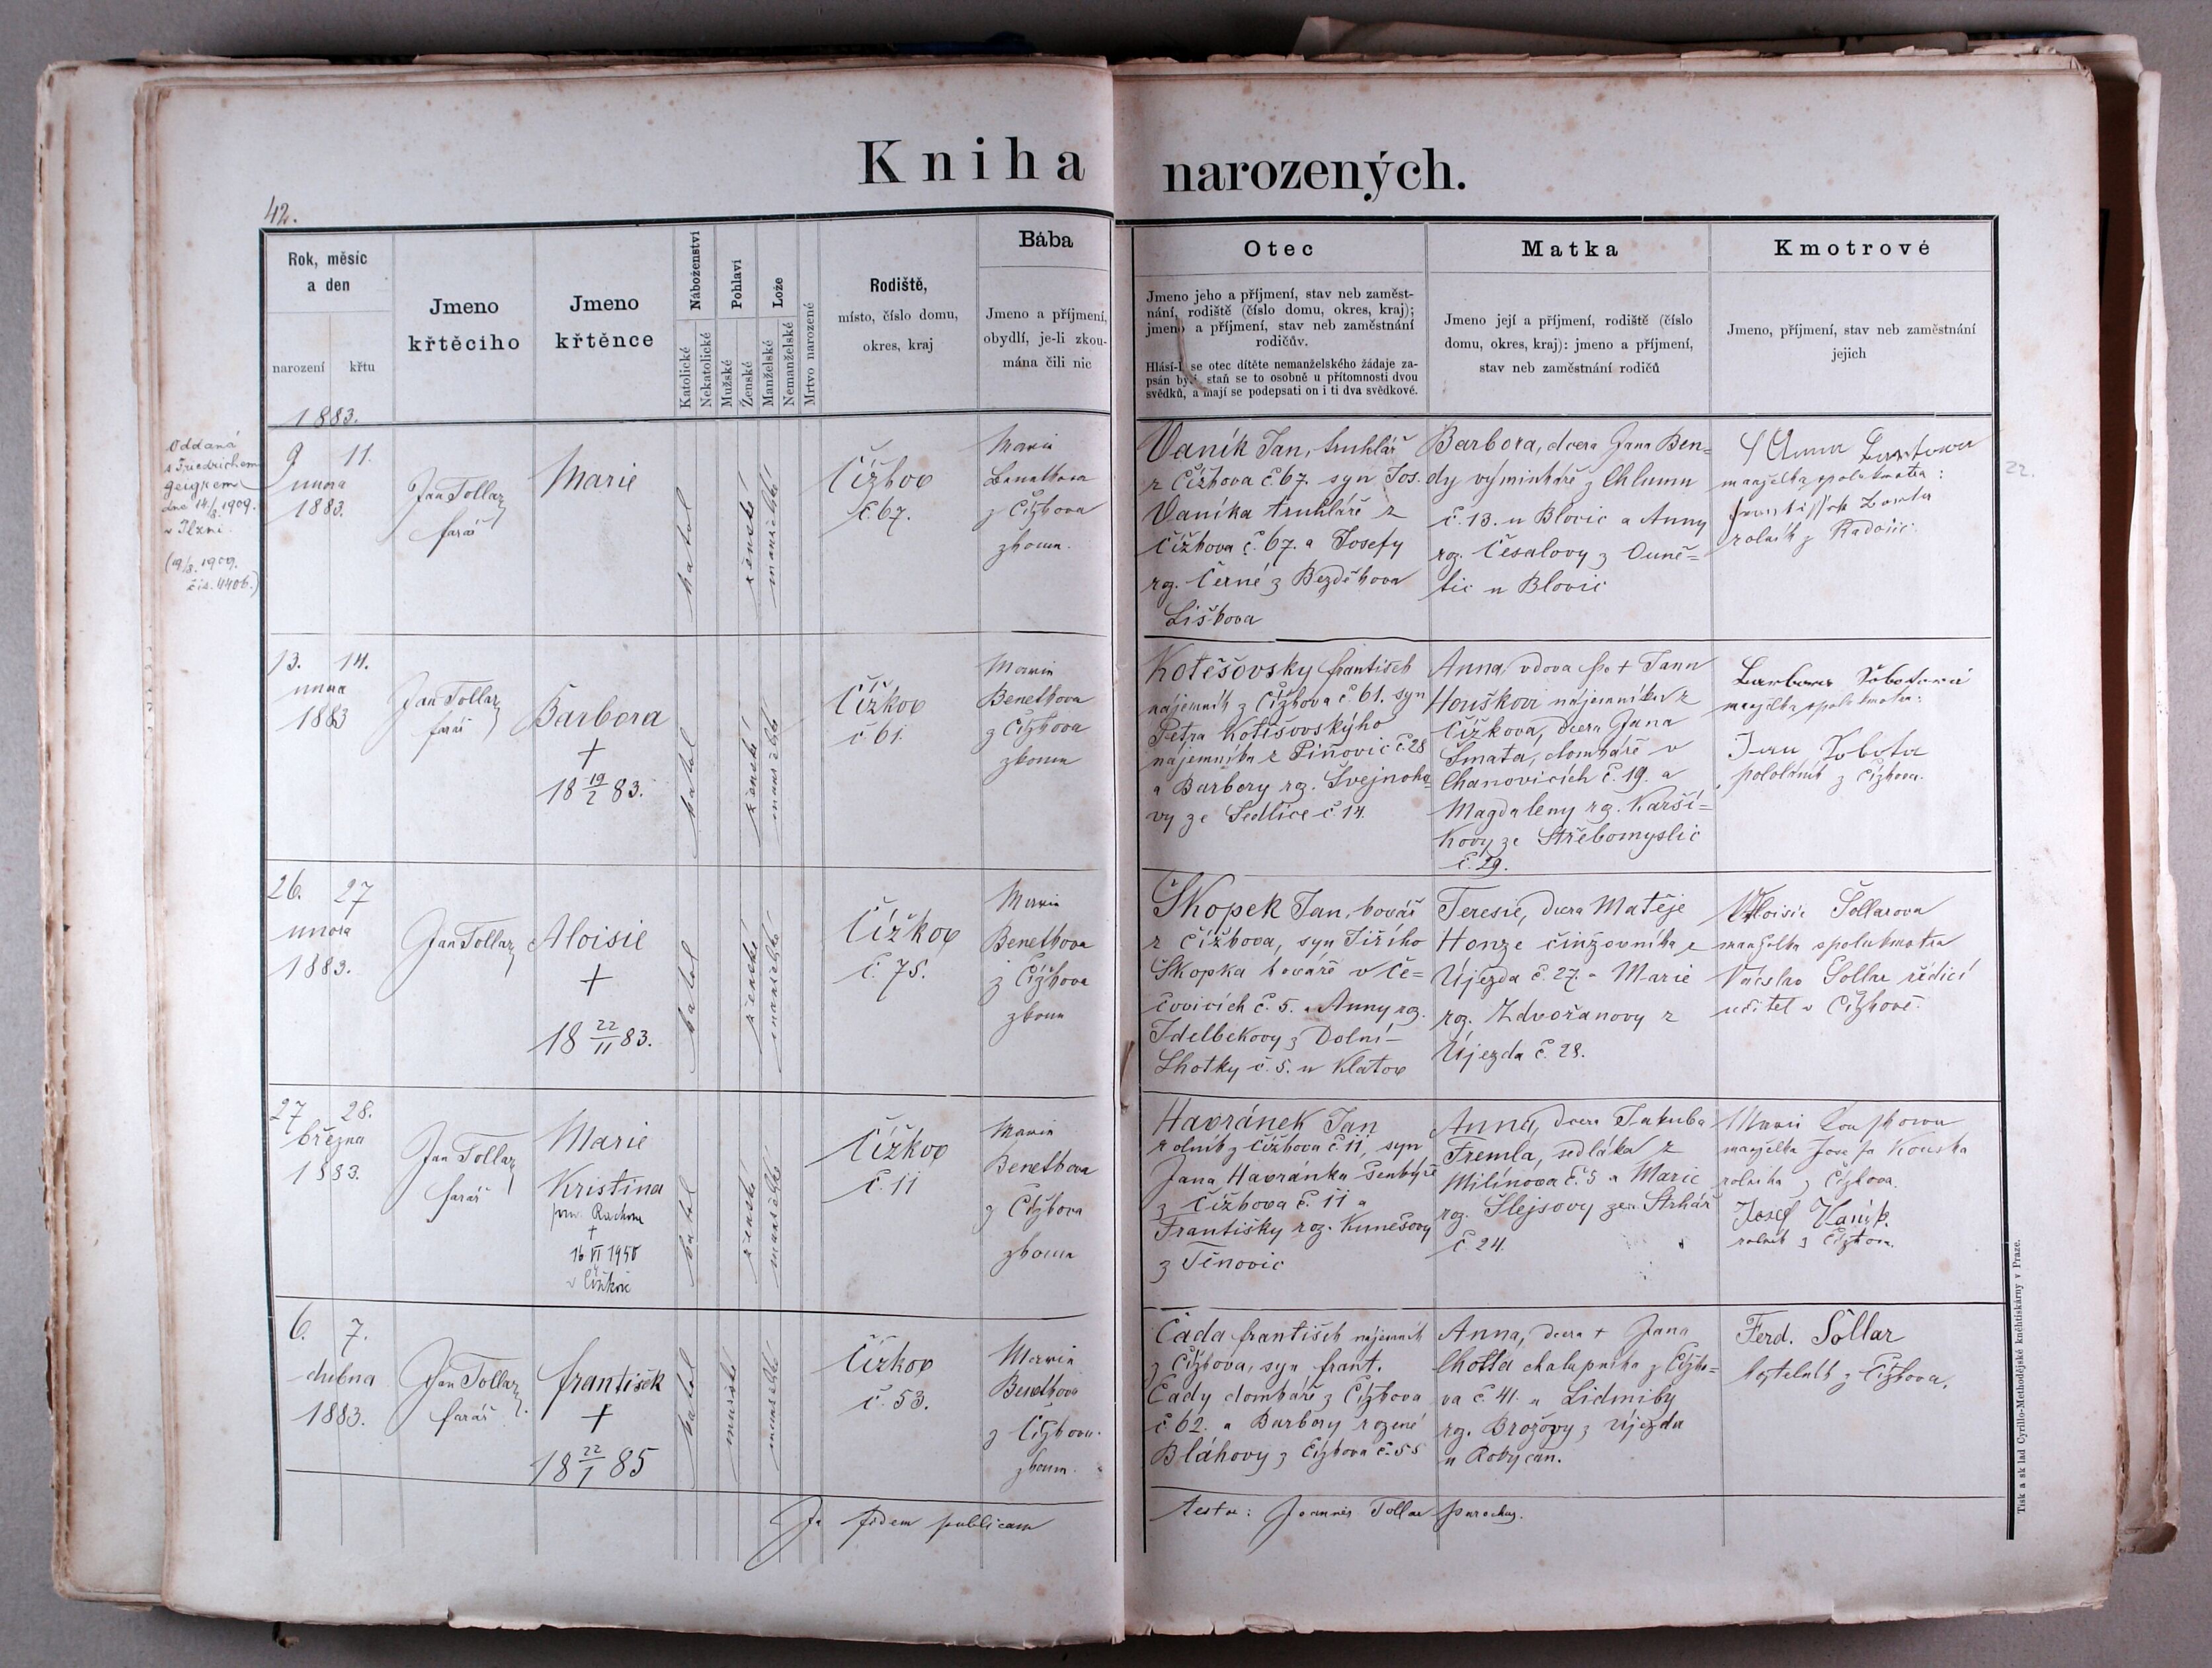 Kniha narozených.
42.
Rok, měsíc
a den
narození křtu
1883.
Jmeno
křtěcího
Jmeno
křtěnce
Náboženství
Katolické
Nekatolické
Pohlaví
Mužské
Ženské
Lože
Manželské
Nemanželské
Mrtvo narozené
Rodiště,
místo, číslo domu,
okres, kraj
Bába
Jmeno a příjmení,
obydlí, je-li zkou-
mána čili nic
Otec
Jmeno jeho a příjmení, stav neb zaměst-
nání, rodiště (číslo domu, okres, kraj);
jmeno a příjmení, stav neb zaměstnání
rodičův.
Hlásí-li se otec dítěte nemanželského žádaje za-
psán býti, staň se to osobně u přítomnosti dvou
svědků, a mají se podepsati on i ti dva svědkové.
Matka
Jmeno její a příjmení, rodiště (číslo
domu, okres, kraj): jmeno a příjmení,
stav neb zaměstnání rodičů
Kmotrové
Jmeno, příjmení, stav neb zaměstnání
jejich
Oddaná
s Friedrichem
Geigrem
dne 14/8. 1909.
v Plzni.
(19/8. 1909.
čís. 4406.)
9 11.
února
1883.
Jan Tollar
farář
Marie
katol
ženské
manželské
Čížkov
č. 67.
Marie
Benethova
z Čížkova
zkoum.
Vaník Jan, truhlář
z Čížkova č. 67. syn Jos.
Vaníka truhláře z
Čížkova č. 67. a Josefy
rz. Černé z Bezděkova
Liškova
Barbora, dcera Jana Ben-
dy výminkáře z Chlumu
č. 13. u Blovic a Anny
rz. Česalovy z Ouně-
tic u Blovic
Anna
manželka spolukmotra:
František
rolník z Radošic.
22.
13. 14.
února
1883
Jan Tollar
farář
Barbora
+
18 19/2 83.
katol
ženské
manželské
Čížkov
č 61.
Marie
Benethova
z Čížkova
zkoum
Kotěšovsky František
nájemník z Čížkova č. 61. syn
Petra Kotěšovskýho
nájemníka z Piňovic č. 28
a Barbory rz. Švejnoho-
vy ze Sedlice č 14.
Anna, vdova po + Janu
Houškovi nájemníku z
Čížkova, dcera Jana
Šmata, domkáře v
Chanovicích č. 19. a
Magdaleny rz. Karší-
kovy ze Střebomyslic
č. 29.
Barbora Sobotová
manželka spolukmotra:
Jan Sobota
pololáník z Čížkova.
26. 27
února
1883.
Jan Tollar
Aloisie
+
18 22/11 83.
katol
ženské
manželské
Čížkov
č. 75.
Marie
Benethova
z Čížkova
zkoum
Škopek Jan, kovář
z Čížkova, syn Jiřího
Škopka kováře v Če-
čovicích č. 5. a Anny rz.
Idelbekovy z Dolní-
Lhotky č. 5. u Klatov
Teresie, dcera Matěje
Honze činžovníka z
Újezda č. 27. a Marie
rz. Zdvořanovy z
Újezda č. 28.
Aloisie Tollarova
manželka spolukmotra
Václav Tollar řídící
učitel v Čížkově.
27 28.
března
1883.
Jan Tollar
farář
Marie
Kristina
prov.
+
16 VI 1950
v Čížkově
katol
ženské
manželské
Čížkov
č. 11
Marie
Benethova
z Čížkova
zkoum
Havránek Jan
rolník z Čížkova č 11, syn
Jana Havránka
z Čížkova č. 11 a
Františky roz. Kunešovy
z Těnovic
Anna, dcera Jakuba
Tremla, sedláka z
Milínova č. 5 a Marie
rz. Šlejsovy ze Strhář
č. 24.
Marie
manželka Josefa
rolníka z Čížkova.
Josef Vaník.
rolník z Čížkova.
6. 7.
dubna
1883.
Jan Tollar
farář
František
+
18 22/1 85
katol
mužské
manželské
Čížkov
č. 53.
Marie
Benethova
z Čížkova.
zkoum.
Čada František nájemník
z Čížkova, syn Frant.
Čady domkáře z Čížkova
č. 62. a Barbory rozené
Bláhovy z Čížkova č. 55
Anna, dcera + Jana
Lhotta chalupníka z Čížko-
va č. 41. a Lidmily
rz. Brožovy z Újezda
u Rokycan.
Ferd. Tollar
kostelník z Čížkova.
In fidem publicam
testor: Joannes Tollar parochus.
Tisk a sklad Cyrillo-Methodějské knihtiskárny v Praze.